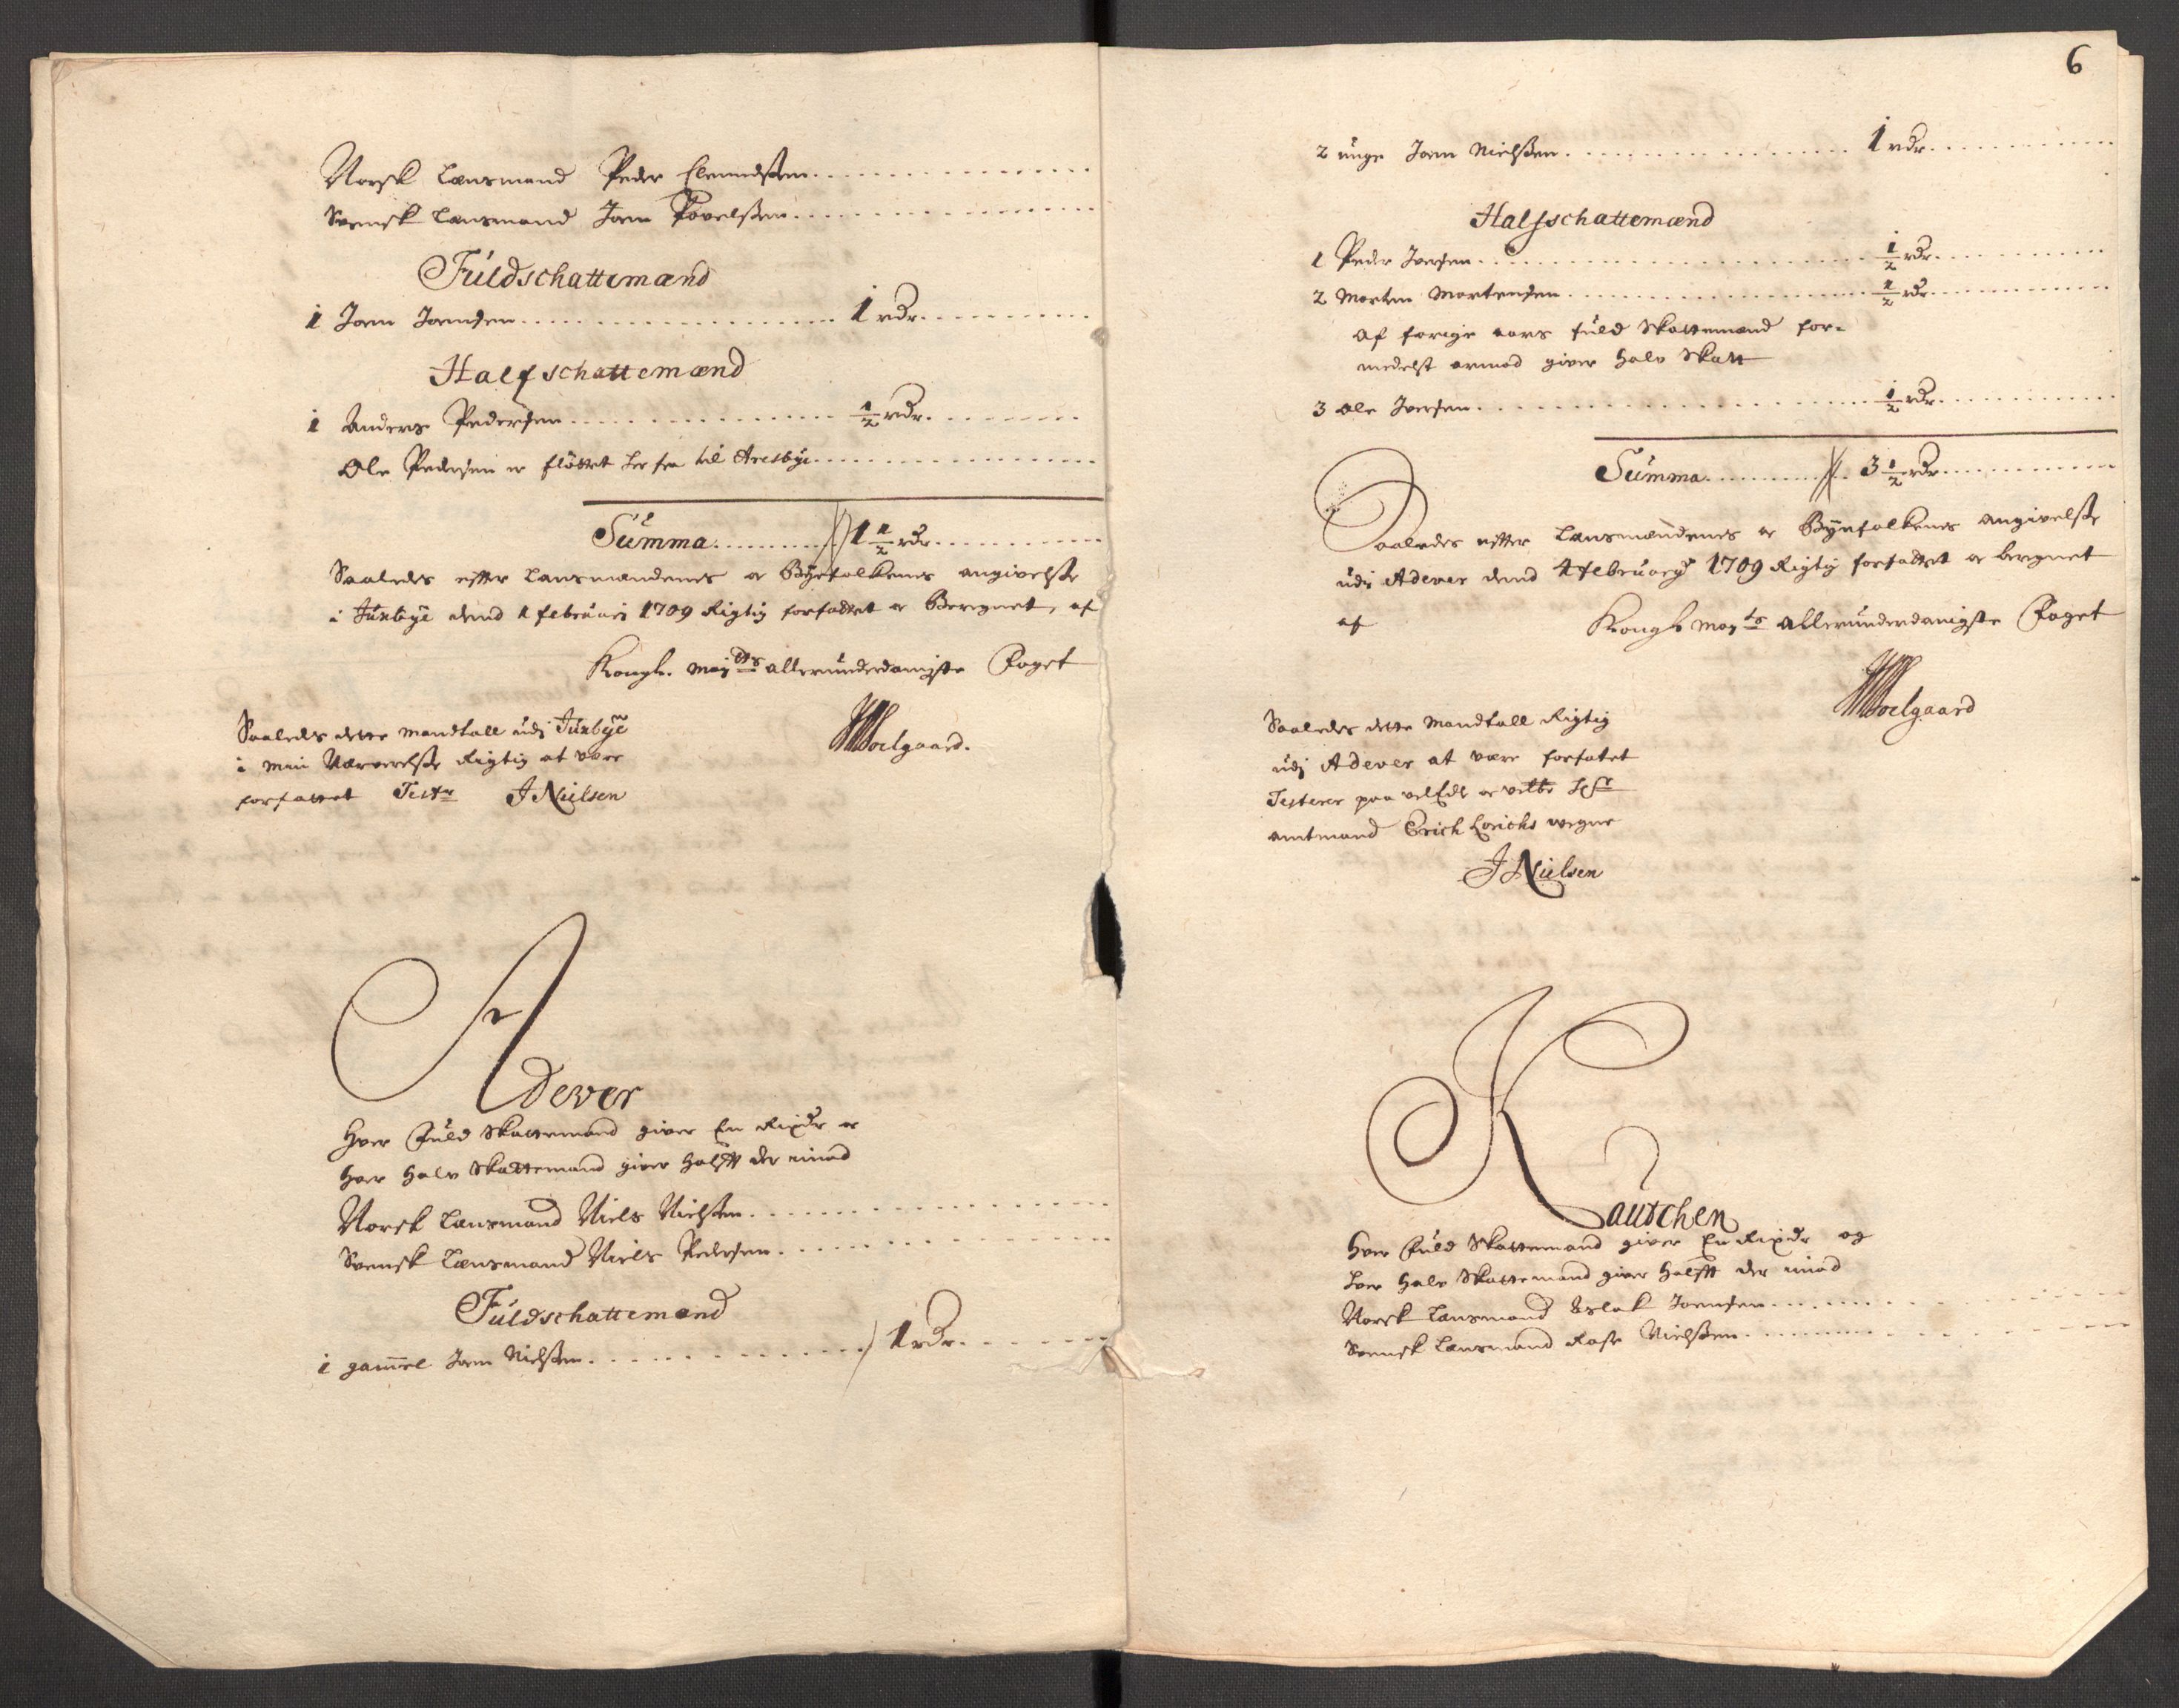 Norsk Lensmand Peder Clemmidtsen
Svensk Lensmand Joen Povelsen
Fuldschattemænd
1 Joen Joensen 1 rdr.
Halfschattemænd
1 Anders Pedersen ½ rdr.
Ole Pedersen er flöttet her fra til Aresbye
Summa 1½ rdr.
Saaledes efter Lensmændenes oc Byefolkenes angivelse
i Juxbye dend 1 februari 1709 Rigtig forfattet oc Beregnet, af
Kongl. Maytts allerunderdanigste Foget
Saaledes dette Mandtall udj Juxbye
i min Nærverelse Rigtig at være
forfattet Test. J Nielsen
Soelgaard.
Adever
Hver Fuld Skattemand giver En Rixdr oc
hver halv Skattemand giver halfft der imod
Norsk Lensmand Niels Nielsen
Svensk Lensmand Niels Pedersen
Fuldschattemænd
1 gammel Joen Nielsen 1 rdr.
6
2 unge Joen Nielsen 1 rdr.
Halfschattemænd
1 Peder Joensen ½ rdr.
2 Morten Mortensen ½ rdr.
Af forige aars fuld Skattemænd for-
medelst armod giver halv Skatt
3 Ole Joensen ½ rdr.
Summa 3½ rdr.
Saaledes efter Lensmændenes oc Byefolkenes angivelse
udj Adever dend 4 february 1709 Rigtig forfattet oc beregnet
af Kongl. Mayts allerunderdanigste Foget
Soelgaard
Saaledes dette Mandtall Rigtig
udj Adever at være forfatet
Testerer paa velEdle oc
amtmand Erich Lorichs vegne
J Nielsen
Kautchen
Hver Fuld Skattemand giver En Rixdr og
hver halv Skattemand giver halfft der imod
Norsk Lensmand Aslak Joensen
Svensk Lensmand Nielsen